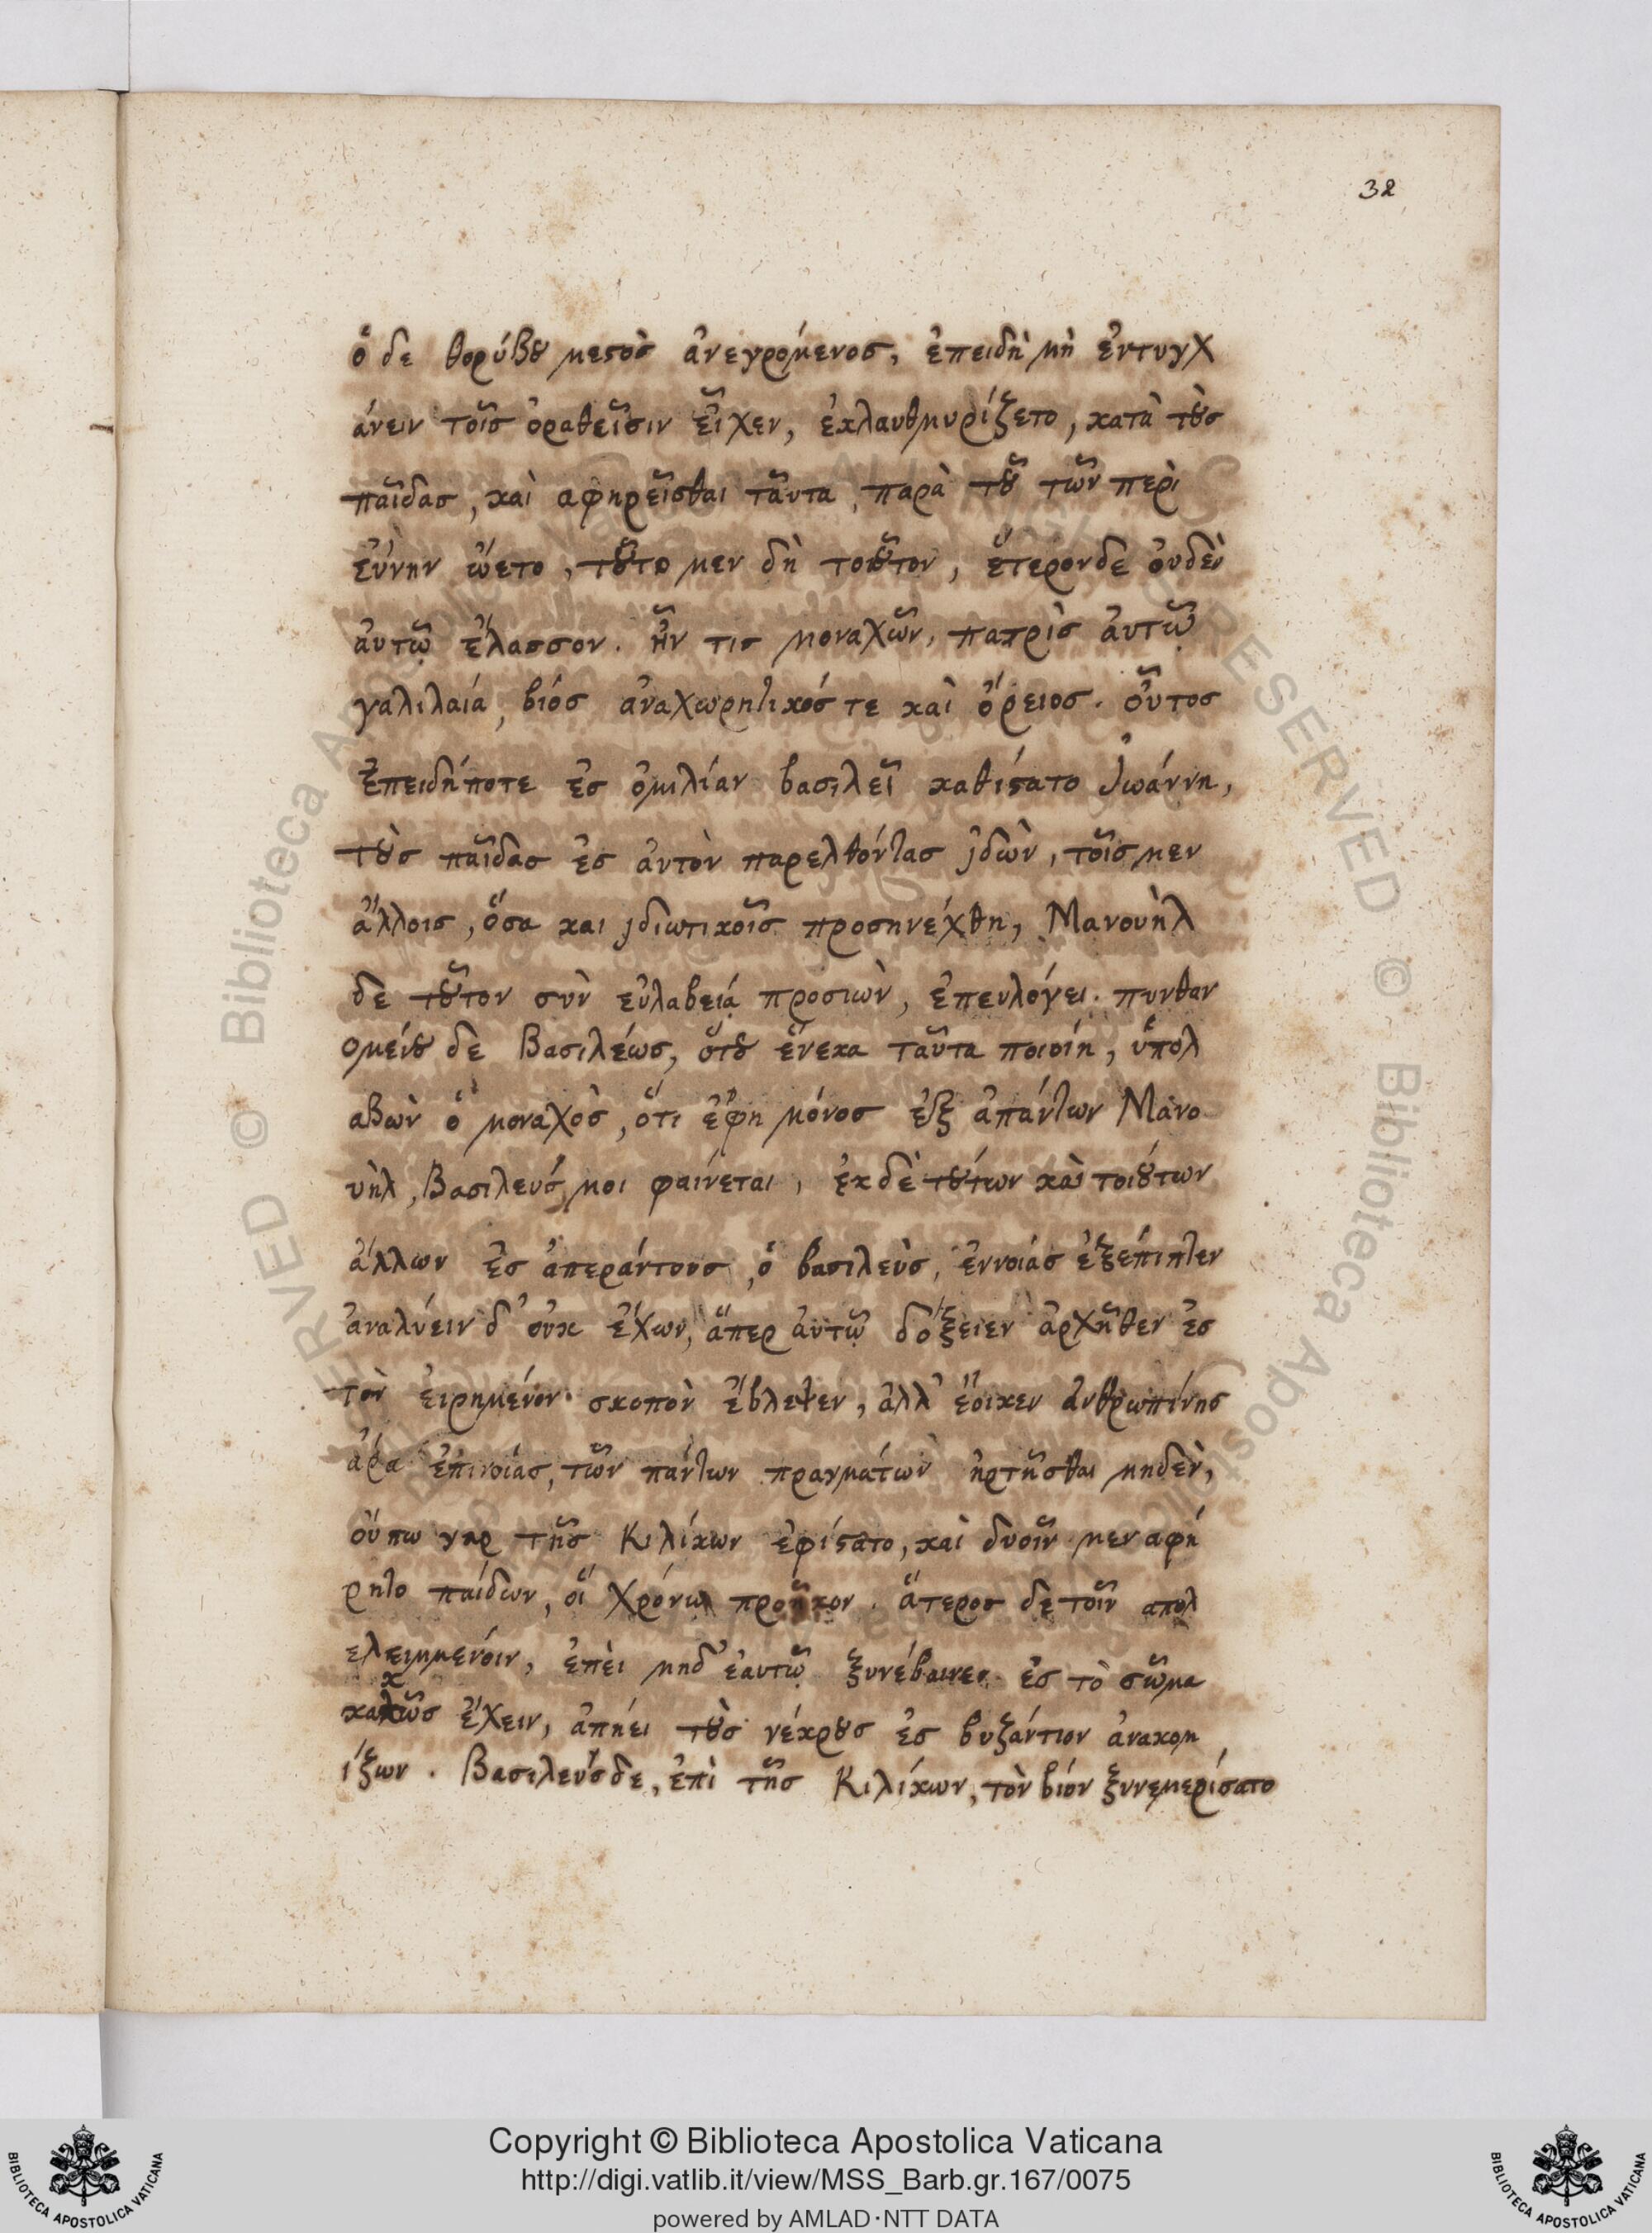 32
ὁ δε θορύβȣ μεϛὸς ἀνεγρόμενος, ἐπειδὴ μὴ ἐντυγχ
άνειν τοῖς ὁραθεῖσιν εἶχεν, ἐκλαυθμυρίζετο, κατὰ τȣ̀ς
παῖδας, καὶ αφηρεῖσθαι ταῦτα, παρὰ τȣ͂ τῶν περὶ
ἐύνὴν ὤετο, τȣ͂το μεν δὴ τοιȣ͂τον, ἕτερονδε ὀυδὲν
ἀυτῷ ἔλασσον. ἦν τις μοναχῶν, πατρὶς ἀυτῷ
γαλιλαία, βιός ἀναχωρητικός τε καὶ ὄρειος. οὗτος
ἐπειδήποτε ἐς ὁμιλίαν βασιλεῖ καθίϛατο Ἰωάννῃ,
τȣ̀ς παῖδας ἐς ἀυτὸν παρελθόντας ἰδὼν, τοῖς μεν
ἄλλοις, ὅσα και ἰδιωτικοῖς προσηνέχθη, Μανουὴλ
δε τȣ͂τον σὺν εὐλαβείᾳ προσιὼν, ἐπευλόγει. πυνθαν
ομένȣ δε Βασιλέως, ὅτȣ ἕνεκα ταῦτα ποιοίη, ὑπολ
αβὼν ὁ μοναχὸς, ὅτι ἔφη μόνος ἐξ ἁπάντων Μανο
υὴλ, Βασιλεύς μοι φαίνεται, ἐκ δὲ τȣ́των καὶ τοιȣ́των
ἄλλων ἐς ἀπεράντους, ὁ βασιλεὺς, ἐννοιάς ἐξέπιπτεν
ἀναλύειν δ' ὀυκ ἔχων, ἅπερ ἀυτῷ δόξειεν ἀρχῆθεν ἐς
τὸν ἐιρημένον σκοπὸν ἔβλεψεν, ἀλλ' ἔοικεν ἀνθρωπίνης
ἄρα ἐπινοίάς, τῶν πάντων πραγμάτων ἠρτῆσθαι μηδὲν,
ὄυπω γαρ τῆς Κιλίκων ἐφίϛατο, καὶ δυοῖν μεν αφή
ρητο παίδων, οἵ χρόνῳ προῆκον. ἅτερος δε τοῖν απολ
ελειμμένοιν, ἐπὲι μηδ' ἑαυτῷ ξυνέβαινεν ἐς τὸ σῶμα
καλῶς ἔχειν, ἀπῄει τȣ̀ς νέκρȣς ἐς βυζάντιον ἀνακομ
ίζων. Βασιλεὺς δε, ἐπὶ τῆς Κιλίκων, τὸν βίον ξυνεμερίσατο
Copyright © Biblioteca Apostolica Vaticana
http://digi.vatlib.it/view/MSS_Barb.gr.167/0075
powered by AMLAD·NTT DATA